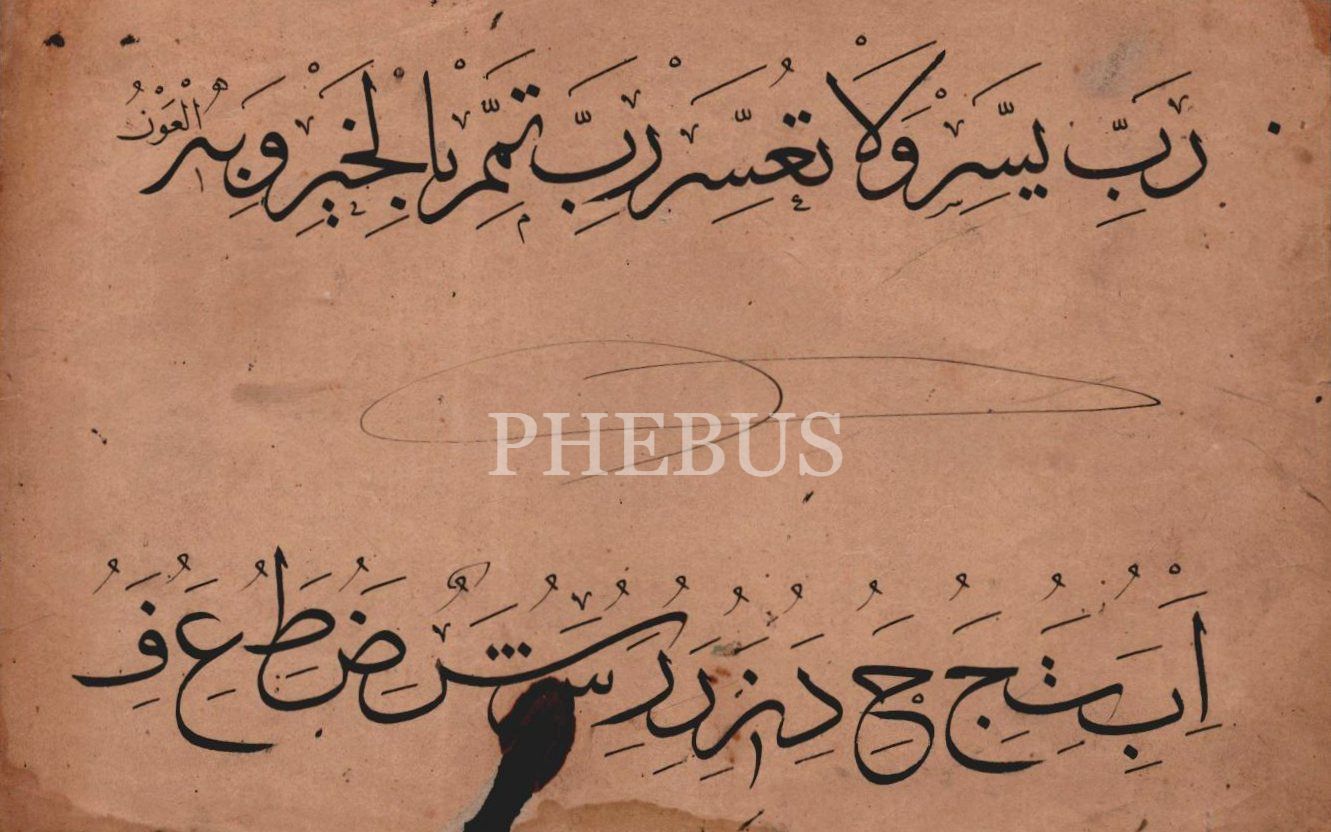 رَبِّ يَسِّرْ وَلَا تُعَسِّرْ رَبِّ تَمِّمْ بِالْخَيْرِ وَبِهِ الْعَوْنُ
PHEBUS
ا ب ت ج ح د
ض ط ع ف